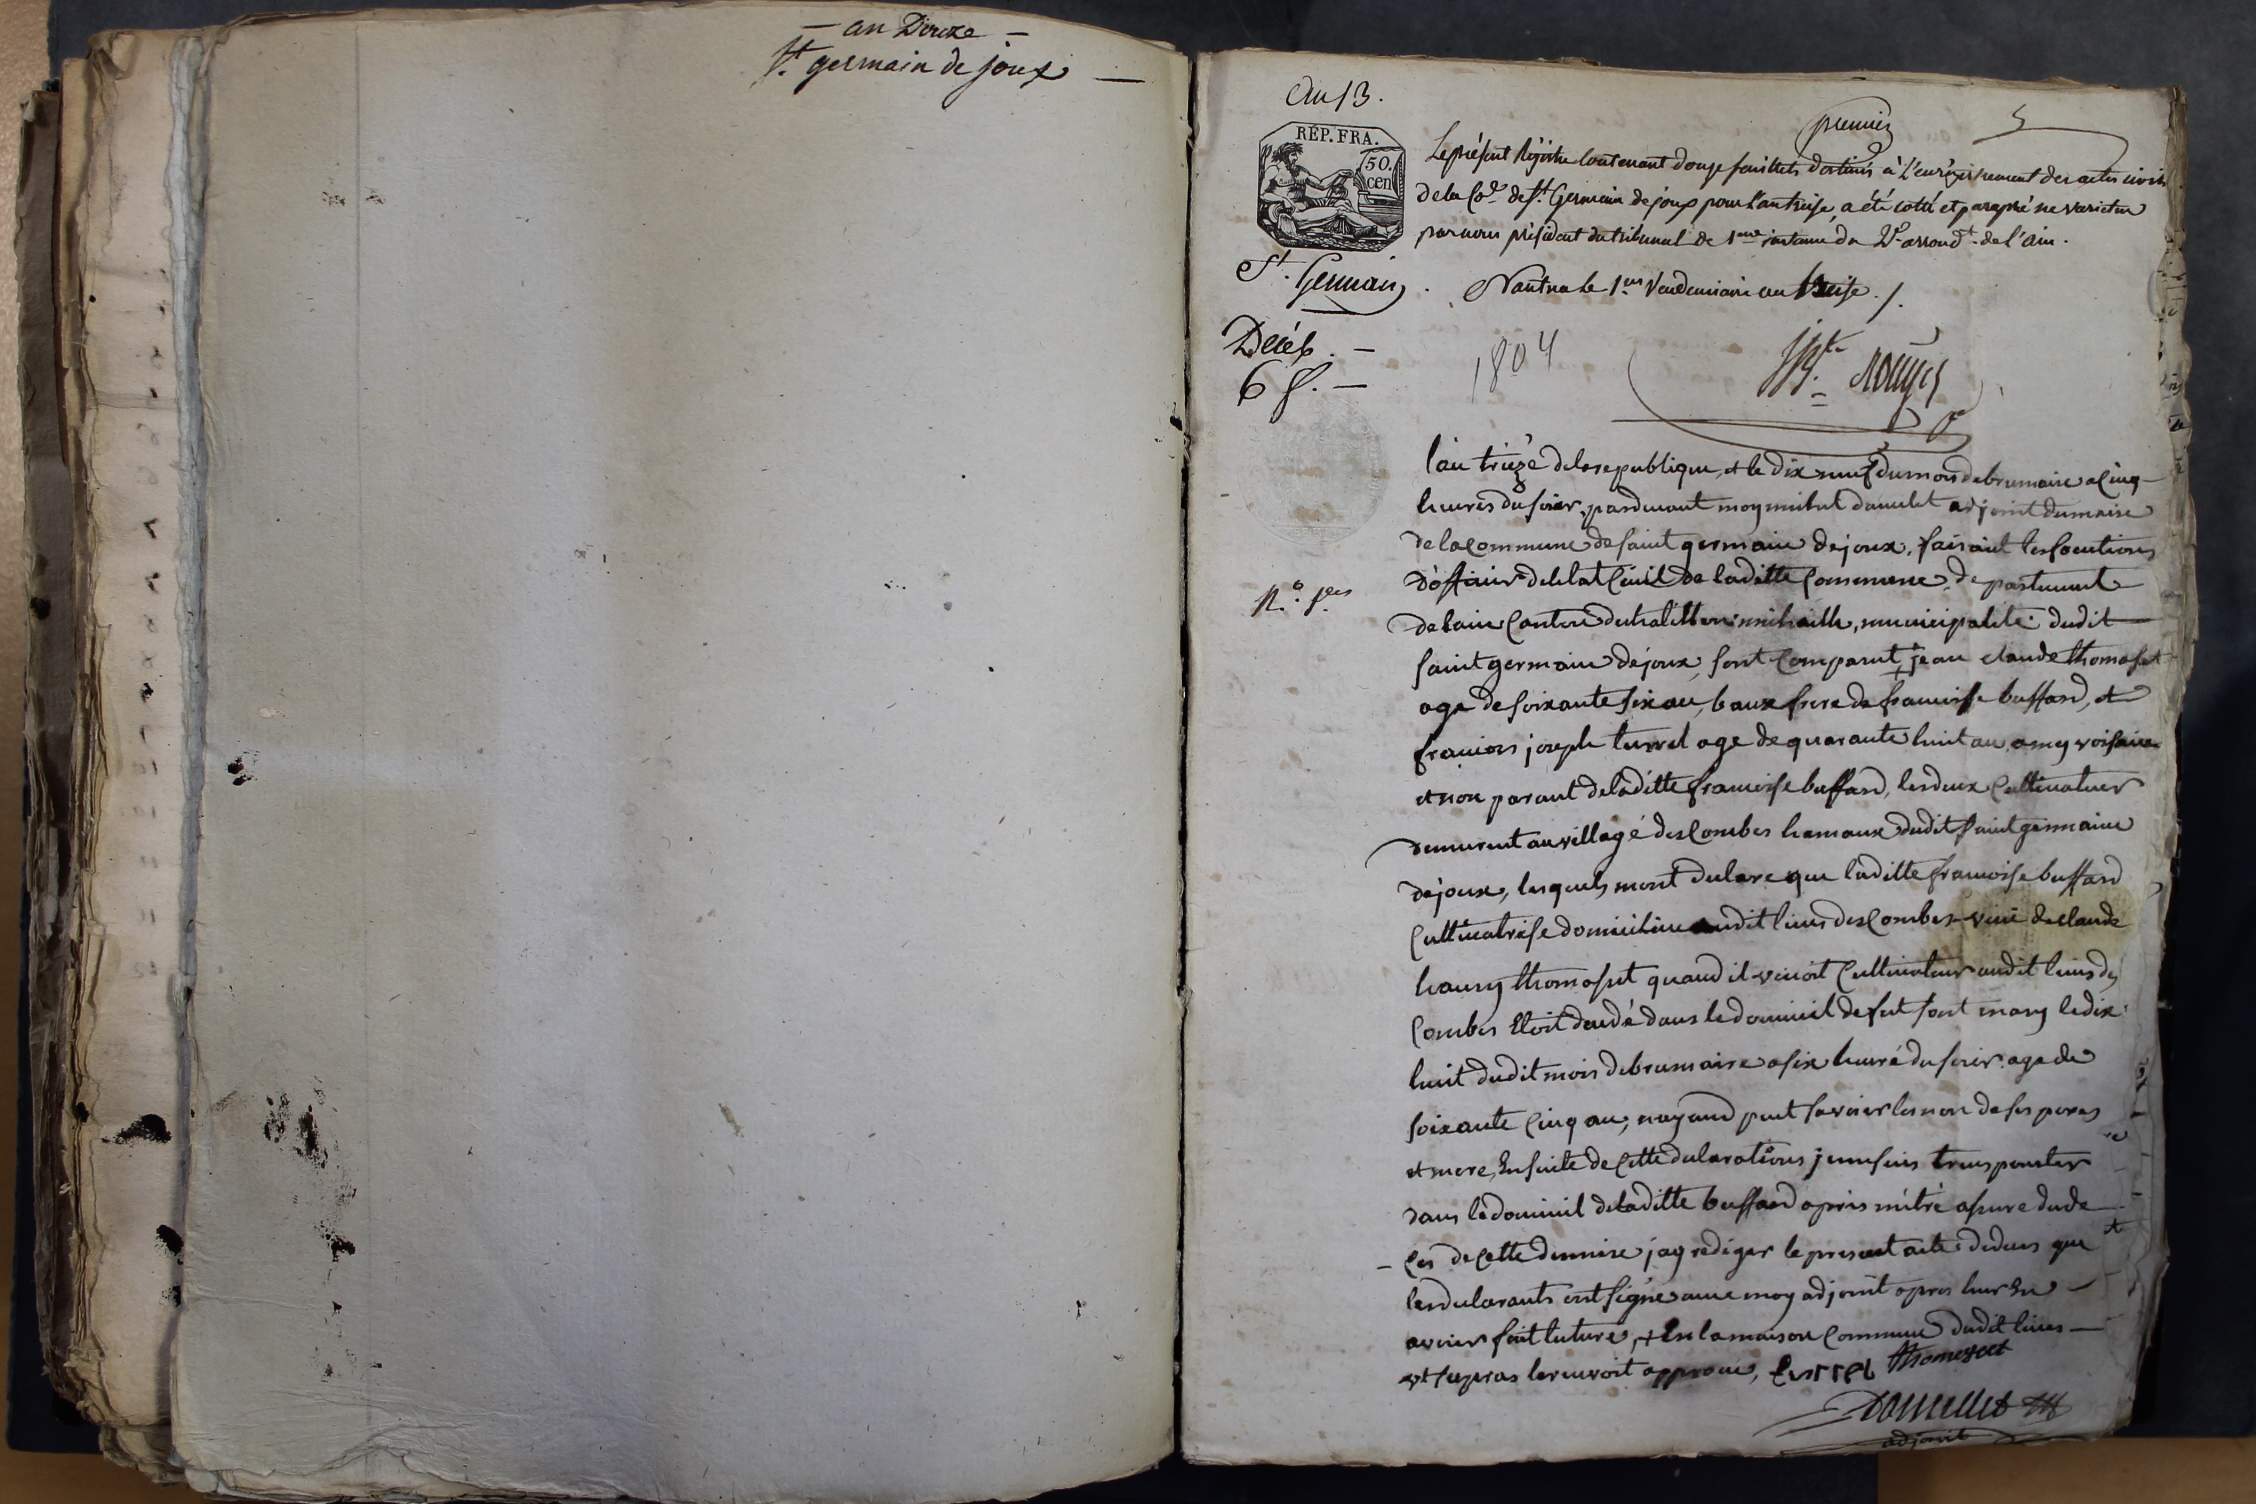 — an Douze —
St. germain de joux —
An 13.
premier
RÉP. FRA.
50.
cen
Le présent Régistre contenant douze feuillets destinés à l'enrégistrement des actes civils
de la Co.e de St. Germain de joux pour l'an treize, a été cotté et paraphé ne varietur
par nous président du tribunal de 1ere instance du 2e arrond.t de l'ain.
St. Germain
Nantua le 1er Vendemiaire an treize ./.
Décés. —
6 f. —
1804
l'an trieze de la republique, et le dix neuf du mois de brumaire a cinq
heures du soier, pardevant moy michel adjoint du maire
de la commune de saint germain de joux, faisant les foncutions
d'officier de letat Civil de laditte Commune, departement
de lain Canton de municipalité dudit
N.o 1er
saint germain de joux, sont comparut, jean claude thomaset
age de soixante six an, baux frere de francoisse buffard, et
francois joseph turrel age de quarante huit an, amy voisain
et non parant de laditte francoise buffard, les deux Cultivatuer
demurent au villagé des Combes hamaux dudit saint germain
de joux, lesquels mont declare que laditte francoise buffard
Cultivatrise domiciliee audit lieus des Combes veuve de claude
hanry thomaset quand il vivoit Cultivateur audit lieus des
Combes Etoit decedé dans le domicil de fut sont mary le dix
huit dudit mois de brumaire a six heuré du soier age de
soixante Cinq an, nayand peut savoier les non de ses peres
et mere, Ensuite de Cette declarations je me suis transporter
dans le domicil de laditte buffard apris métré asure du de
— Ces de Cette derniere jay rediger le present acte dedeus que
les declarants ont signé avec moy adjoint apres leur En
avoier fait lutture, + En la maison Commune dudit lieus —
et supras le renvoit approuve, turrel thomasset
adjoint